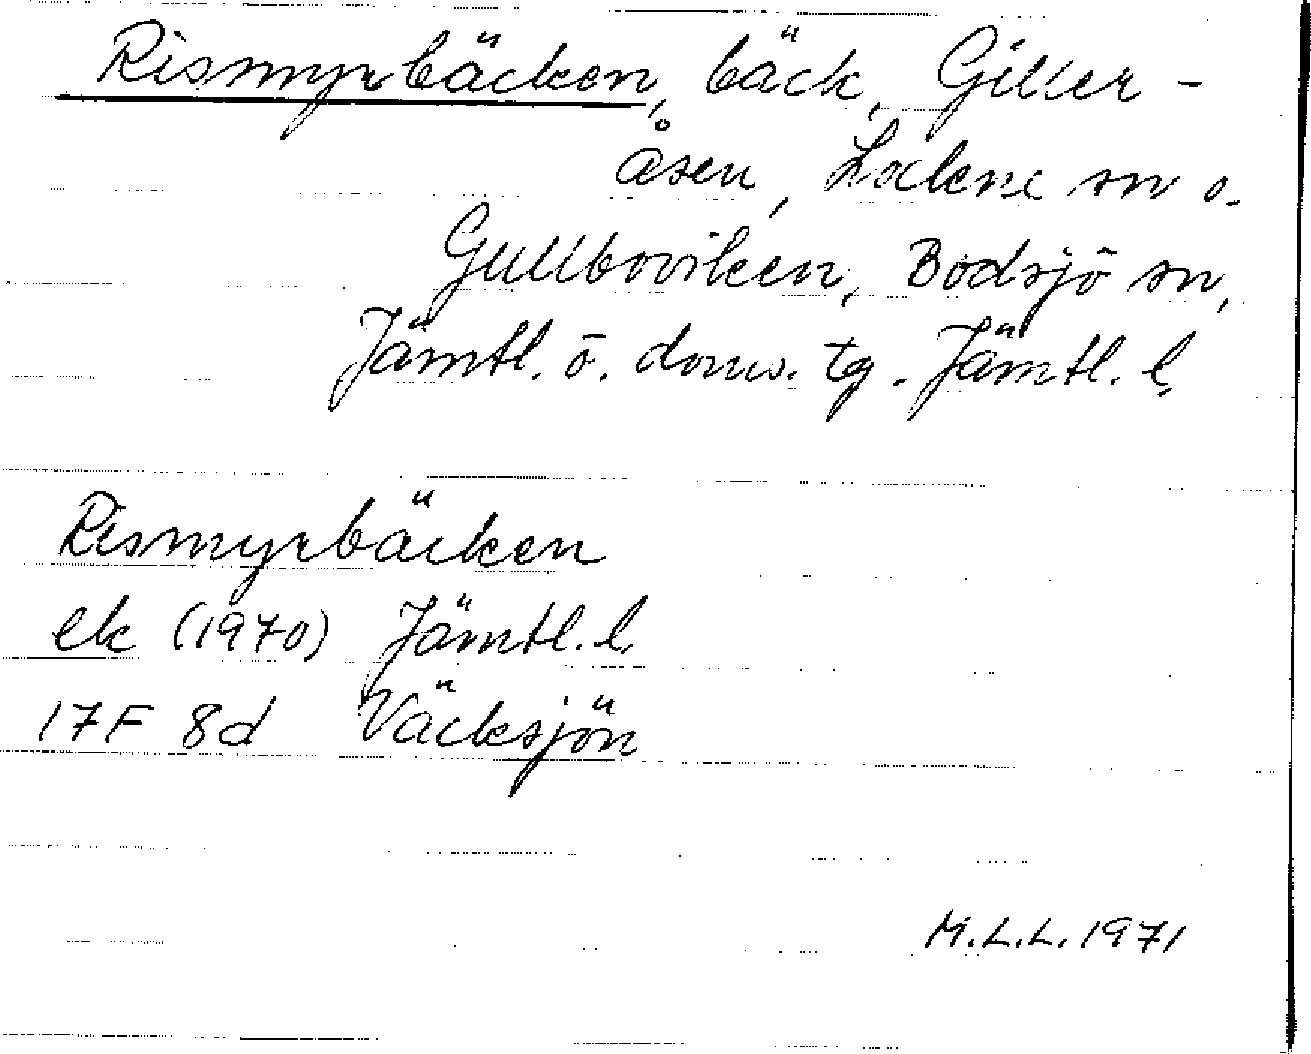 Rismyrbäcken, bäck, Giller-
åsen, Lockne sn o.
Gullboviken, Bodsjö sn,
Jämtl. ö. doms. tg. Jämtl. l.
Rismyrbäcken
ek (1970) Jämtl. l.
17F 8d Väcksjön
M.L.L. 1971